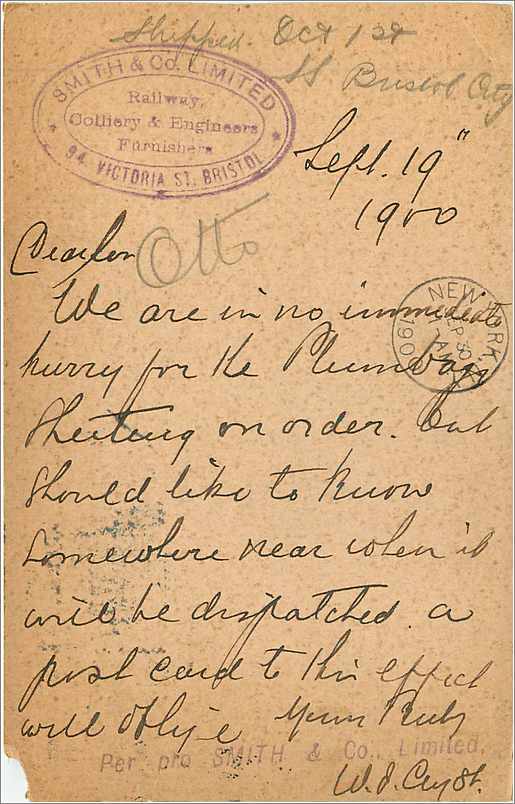 Shipped. Oct 1st
SS Bristol City
SMITH & Co. LIMITED
Railway,
Colliery & Engineers
Furnishers
94, VICTORIA ST. BRISTOL
Sept. 19"
1900
Otto
We are in no immediate
hurry for the Plumbago
Sheeting on order. but
should like to know
somewhere near when it
will be dispatched. a
post card to this effect
will oblige Yours Truly
Per pro SMITH & Co., Limited,
NEW YORK
SEP 30
1900